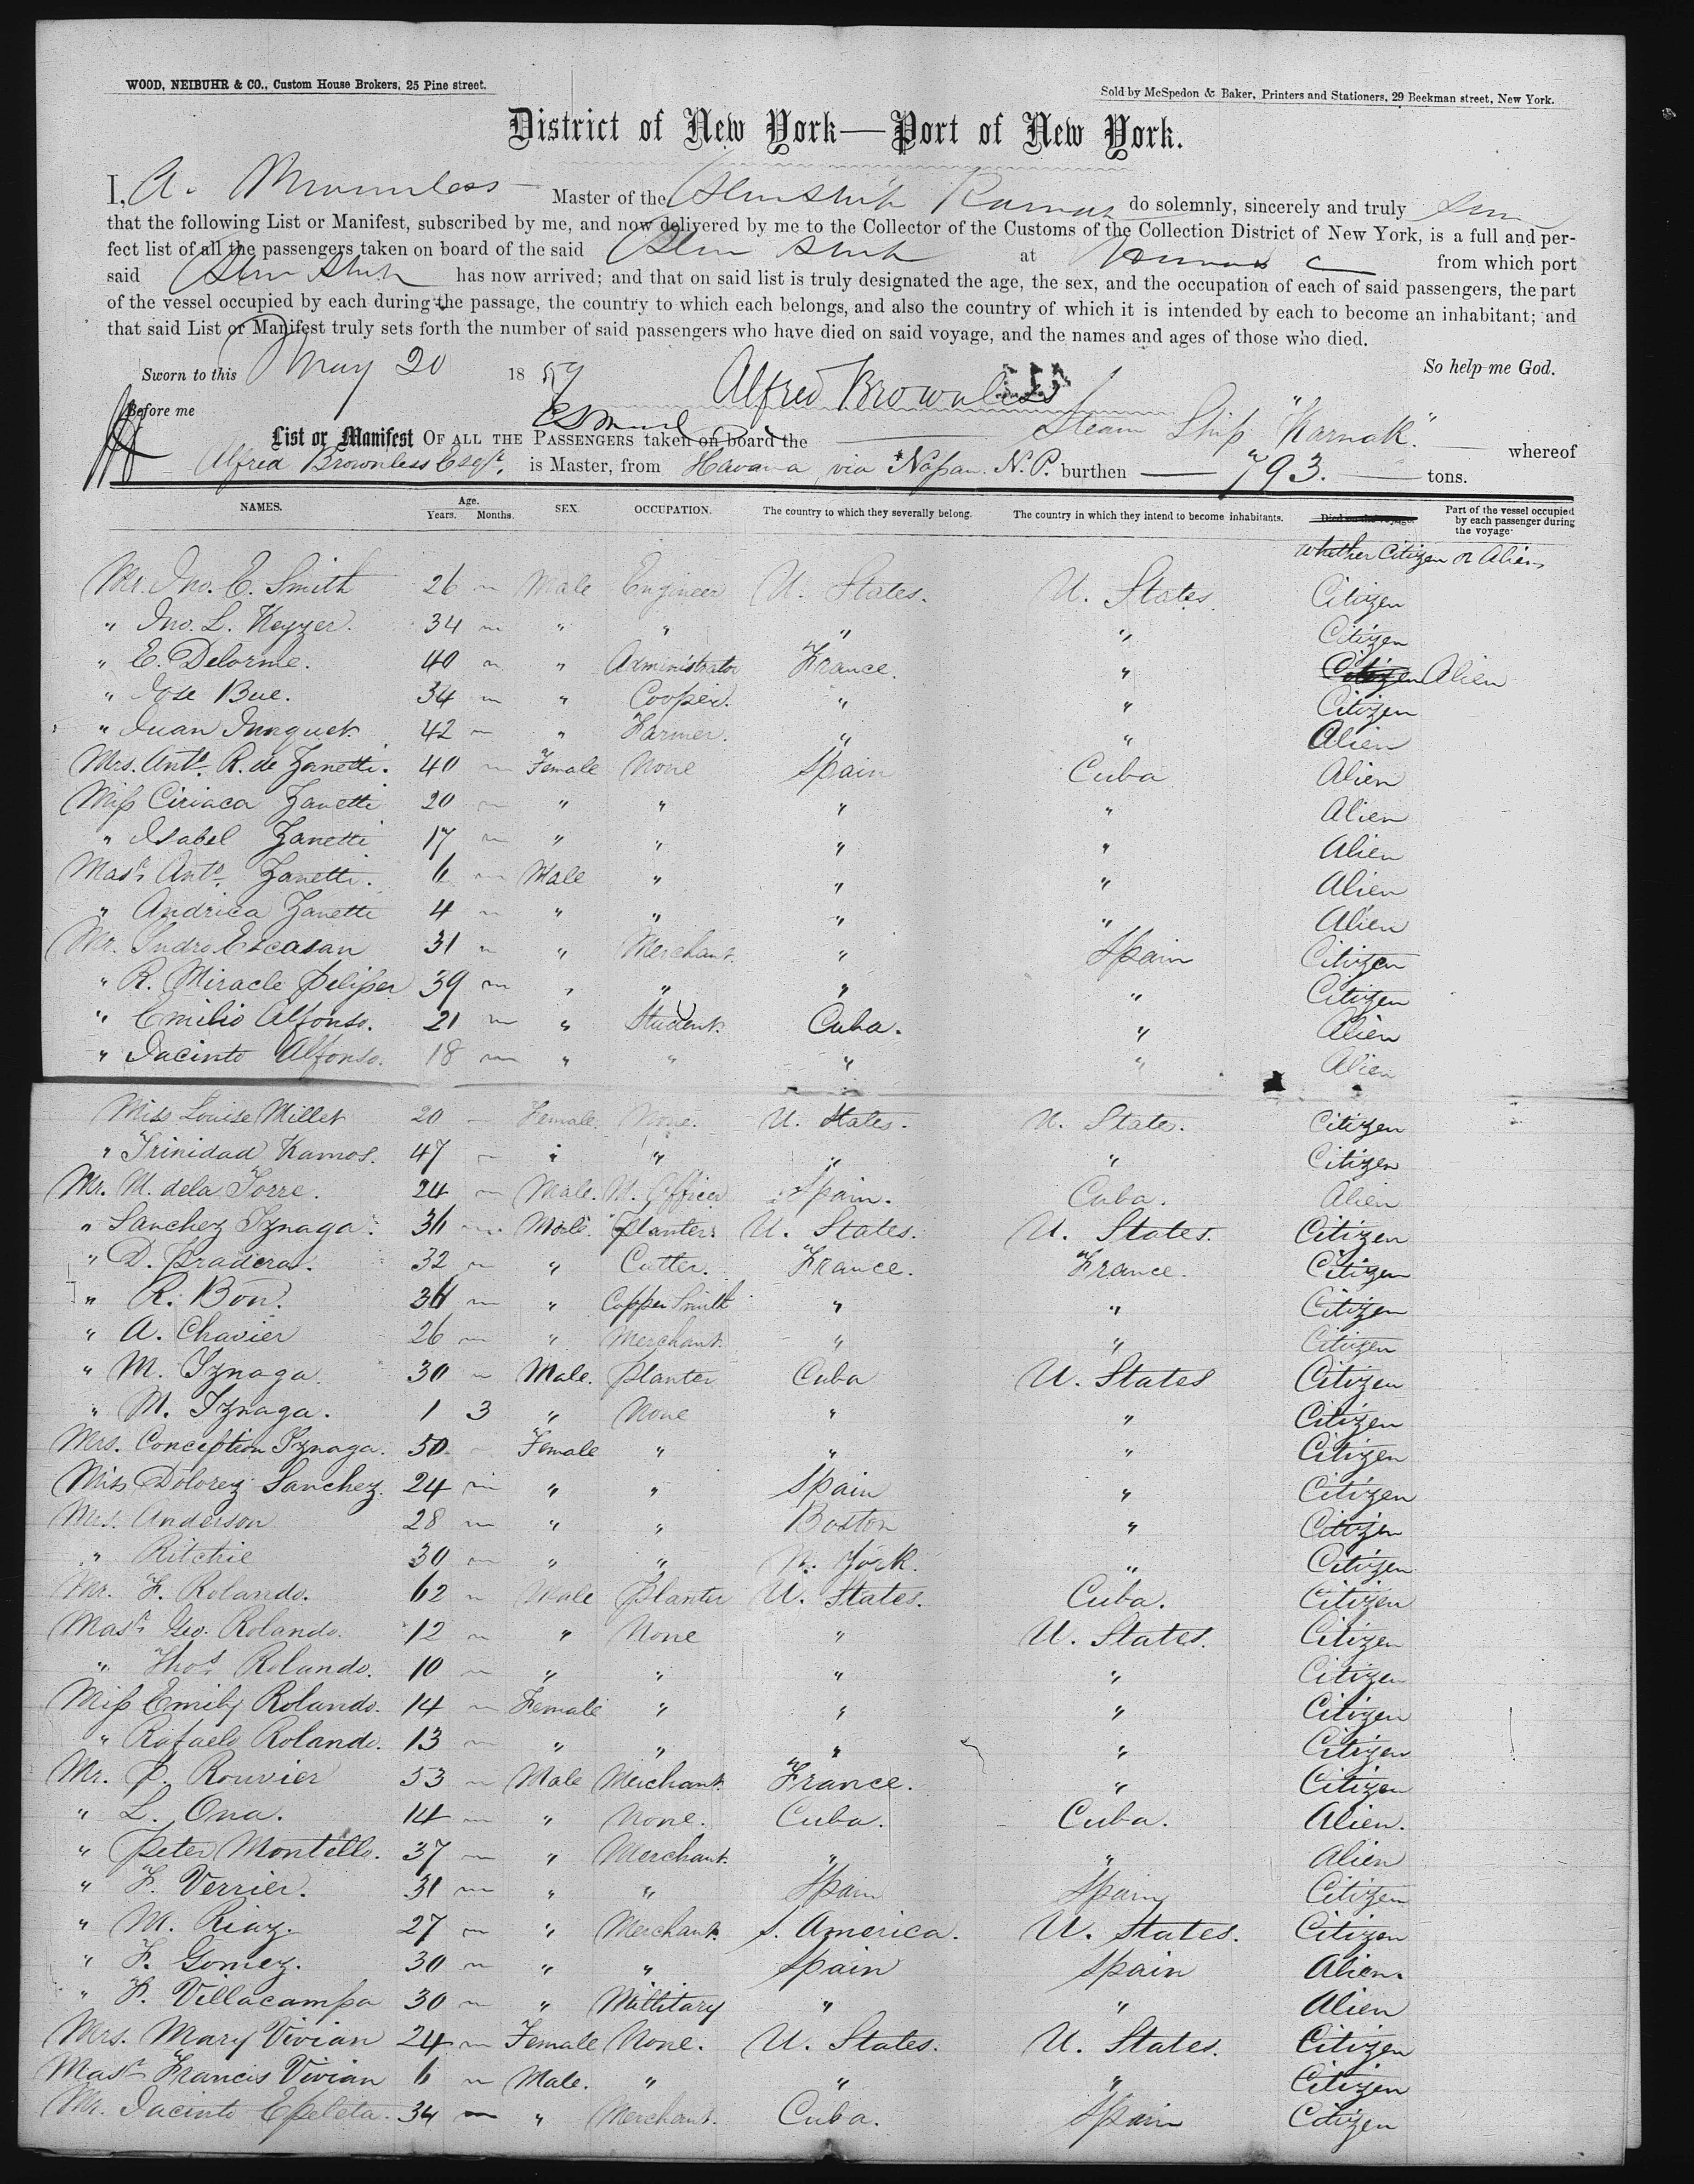 WOOD, NEIBUHR & CO., Custom House Brokers, 25 Pine street.
Sold by McSpedon & Baker, Printers and Stationers, 29 Beekman street, New York.
District of New York—Port of New York.
I, A. Brownless Master of the Steam Ship Karnak do solemnly, sincerely and truly
that the following List or Manifest, subscribed by me, and now delivered by me to the Collector of the Customs of the Collection District of New York, is a full and per-
fect list of all the passengers taken on board of the said Steam Ship at from which port
said Steam Ship has now arrived; and that on said list is truly designated the age, the sex, and the occupation of each of said passengers, the part
of the vessel occupied by each during the passage, the country to which each belongs, and also the country of which it is intended by each to become an inhabitant; and
that said List or Manifest truly sets forth the number of said passengers who have died on said voyage, and the names and ages of those who died.
Sworn to this May 20 1859 Alfred Brownless So help me God.
Before me
List or Manifest OF ALL THE PASSENGERS taken on board the Steam Ship "Karnak." whereof
Alfred Brownless Esqr. is Master, from Havana via Nassau N.P. burthen 793. tons.
NAMES. Age. Years. Months. SEX. OCCUPATION. The country to which they severally belong. The country in which they intend to become inhabitants. Died on the voyage. Part of the vessel occupied by each passenger during the voyage
whether Citizen or Alien
Mr. Jno. E. Smith 26 Male Engineer U. States. U. States. Citizen
" Jno. L. Keyzer. 34 " " " " Citizen
" E. Delorme. 40 " Administrator France. " Citizen Alien
" Jose Bue. 34 " Cooper. " " Citizen
" Juan 42 " Farmer. " " Alien
Mrs. Anto. R. de Zanetti. 40 Female None Spain Cuba Alien
Miss Ciriaca Zanetti 20 " " " " Alien
" Isabel Zanetti 17 " " " " Alien
Mastr. Anto. Zanetti. 6 Male " " " Alien
" Andrica Zanetti 4 " " " " Alien
Mr. Escasan 31 " Merchant. " Spain Citizen
" R. Miracle 39 " " " " Citizen
" Emilio Alfonso. 21 " Student. Cuba. " Alien
" Jacinto Alfonso. 18 " " " " Alien
Miss Louise Millet 20 Female. None. U. States. U. State. Citizen
" Trinidad Ramos. 47 " " " " Citizen
Mr. M. dela Torre. 24 Male. M. Officer Spain. Cuba. Alien
" Sanchez Iznaga. 36 Male. Planter. U. States. U. States. Citizen
" D. Pradera. 32 " Cutter. France. France. Citizen
" R. Bon. 34 " Copper Smith " " Citizen
" A. Chavier 26 " Merchant. " " Citizen
" M. Iznaga. 30 Male. Planter Cuba U. States Citizen
" M. Iznaga. 1 3 " None " " Citizen
Mrs. Conception Iznaga. 50 Female " " " Citizen
Miss Dolorez Sanchez. 24 " " Spain " Citizen
Mrs. Anderson 28 " " Boston " Citizen
" Ritchie 30 " " N. York. " Citizen
Mr. F. Rolando. 62 Male Planter U. States. Cuba. Citizen
Mastr. Geo. Rolando. 12 " None " U. States. Citizen
" Thos. Rolando. 10 " " " " Citizen
Miss Emily Rolando. 14 Female " " " Citizen
" Rafaela Rolando. 13 " " " " Citizen
Mr. P. Rouvier 53 Male Merchant. France. " Citizen
" L. Ona. 14 " None. Cuba. Cuba. Alien.
" Peter Montello. 37 " Merchant. " " Alien
" F. Verrier. 31 " " Spain Spain Citizen
" M. Riaz. 27 " Merchant. S. America. U. States. Citizen
" F. Gomez. 30 " " Spain Spain Alien.
" F. Villacampa 30 " Millitary " " Alien
Mrs. Mary Vivian 24 Female None. U. States. U. States. Citizen
Mastr Francis Vivian 6 Male. " " " Citizen
Mr. Jacinto Epeleta. 34 " Merchant. Cuba. Spain Citizen